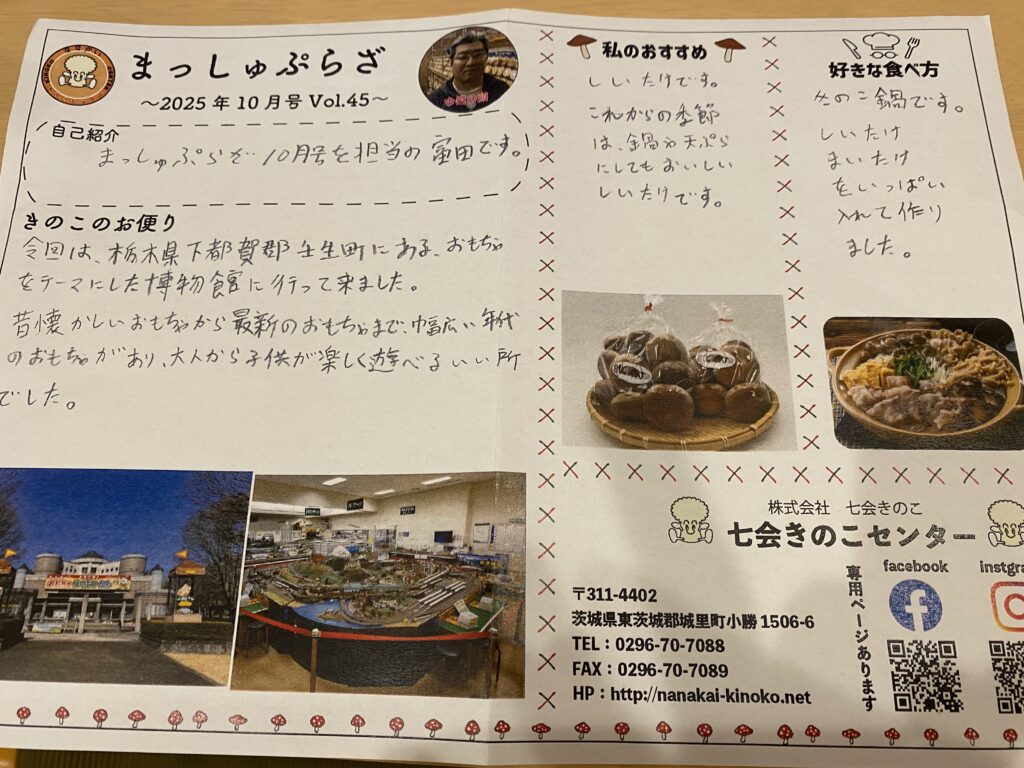 まっしゅぷらざ
～2025年10月号 Vol.45～
自己紹介
まっしゅぷらざ10月号を担当の富田です。
きのこのお便り
今回は、栃木県下都賀郡壬生町にある、おもちゃ
をテーマにした博物館に行って来ました。
昔懐かしいおもちゃから最新のおもちゃまで、幅広い年代
のおもちゃがあり、大人から子供が楽しく遊べるいい所
でした。
私のおすすめ
しいたけです。
これからの季節
は、鍋や天ぷら
にしてもおいしい
しいたけです。
好きな食べ方
きのこ鍋です。
しいたけ
まいたけ
をいっぱい
入れて作り
ました。
株式会社 七会きのこ
七会きのこセンター
専用ページあります
facebook
instgra
〒311-4402
茨城県東茨城郡城里町小勝1506-6
TEL：0296-70-7088
FAX：0296-70-7089
HP：http://nanakai-kinoko.net